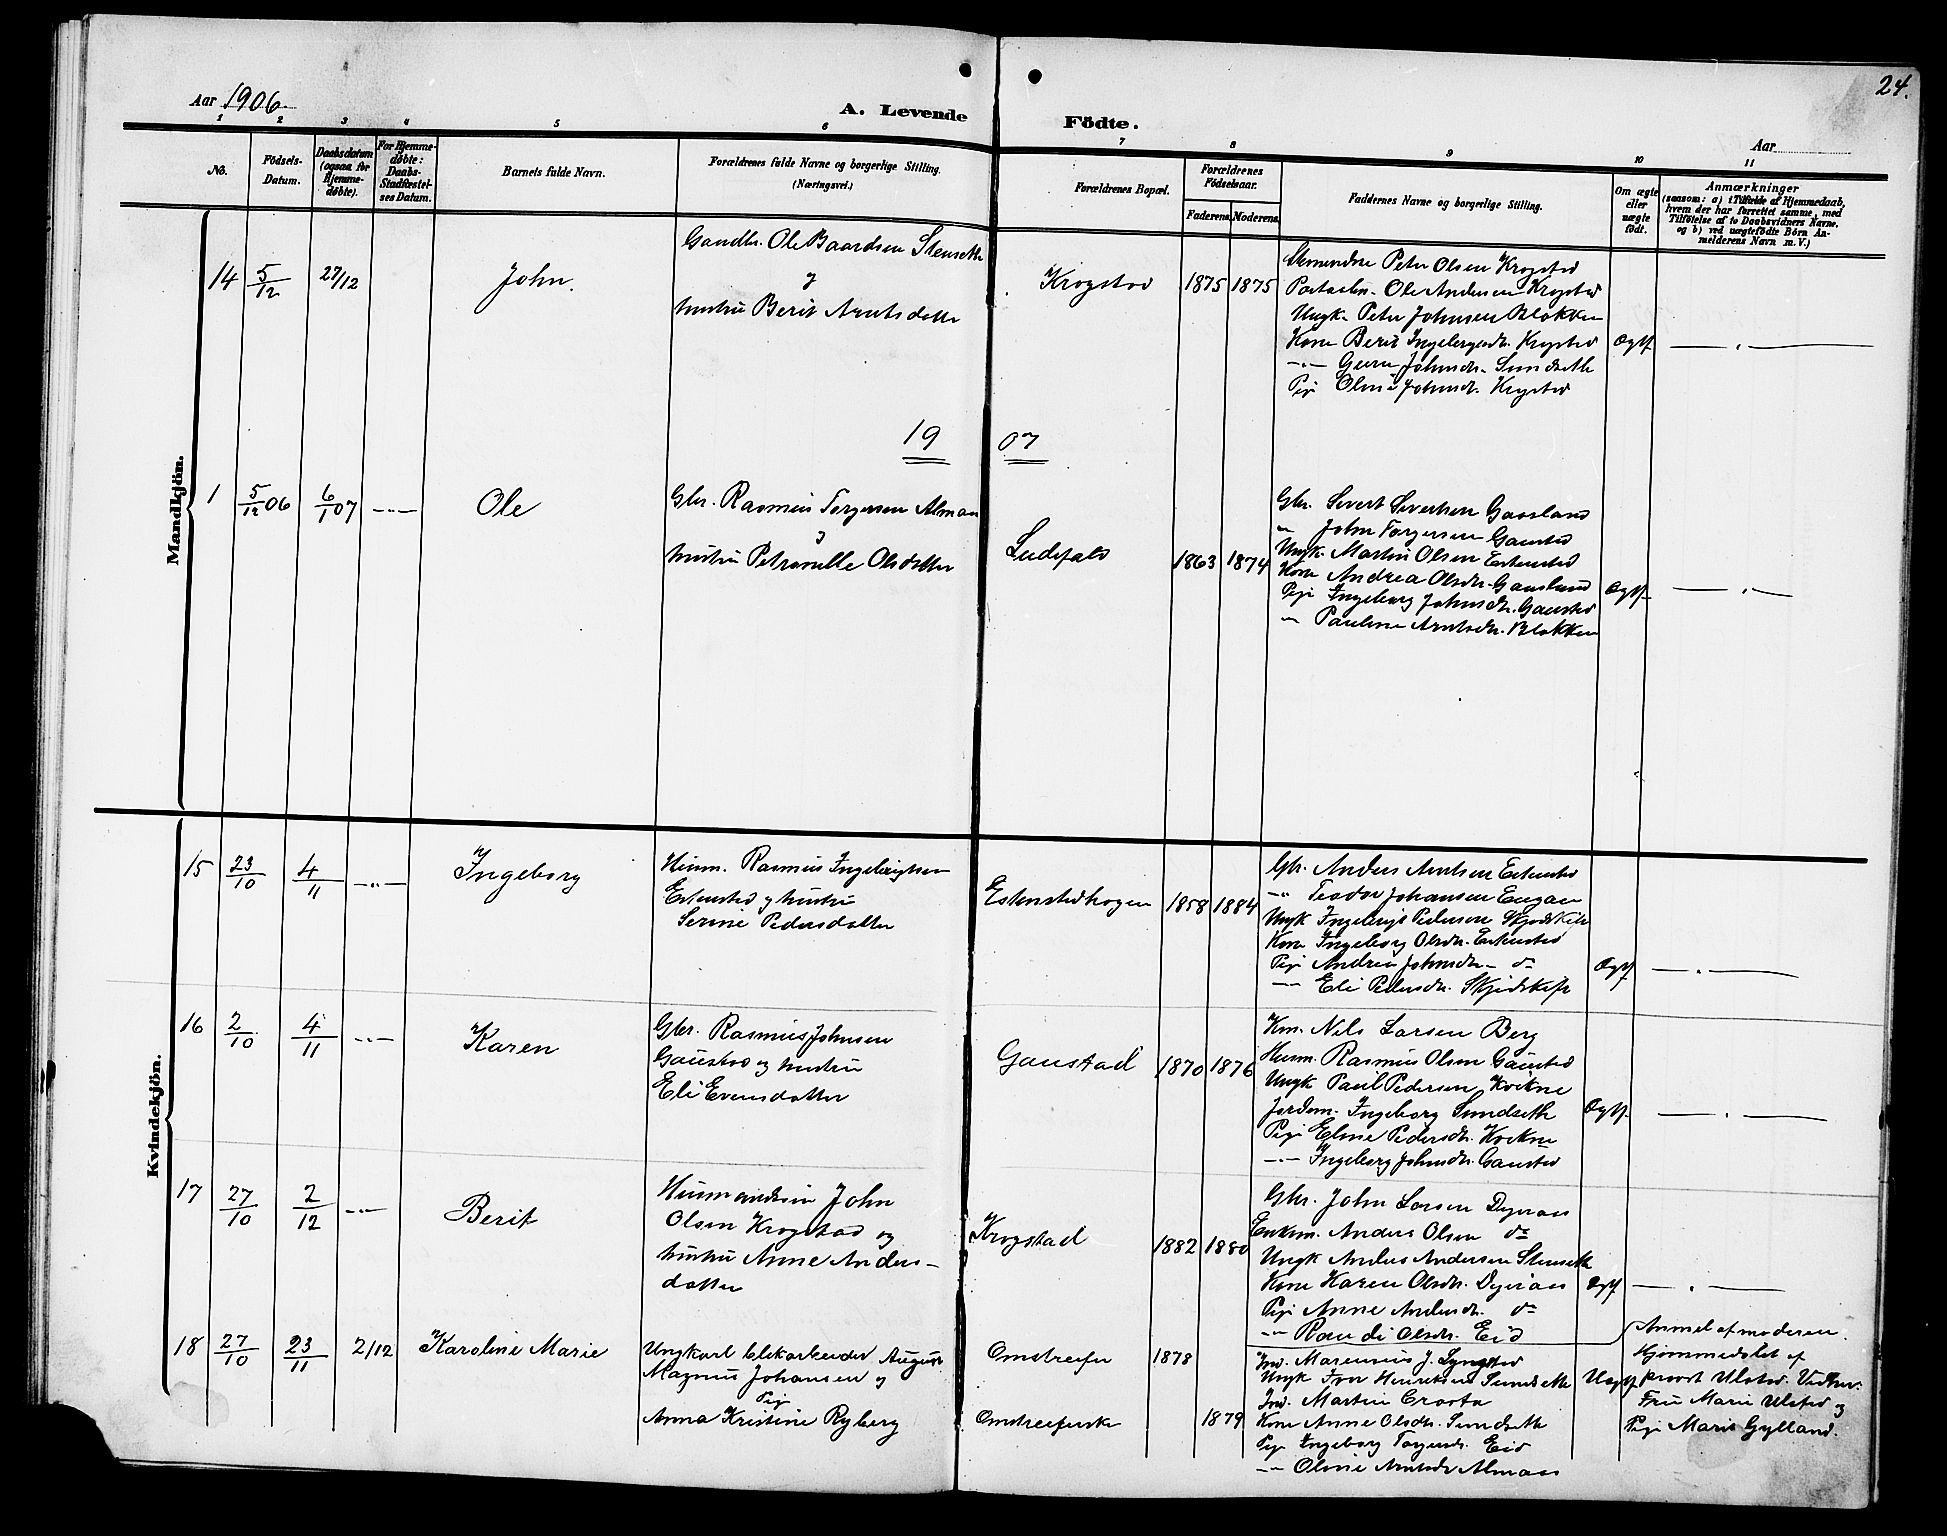 24.
Aar 1906.
A. Levende Födte.
Aar
1 2 3 4 5 6 7 8 9 10 11
No.
Födsels-Datum.
Daabsdatum (ogsaa for Hjemme-døbte).
For Hjemme-døbte: Daabs-Stadfæstel-ses Datum.
Barnets fulde Navn.
Forældrenes fulde Navne og borgerlige Stilling.
(Næringsvei.)
Forældrenes Bopæl.
Forældrenes Födselsaar.
Faderens. Moderens.
Faddernes Navne og borgerlige Stilling.
Om ægte eller uægte født.
Anmærkninger
(saasom: a) i Tilfælde af Hjemmedaab,
hvem der har forrettet samme, med
Tilføielse af to Daabsvidners Navne,
og b) ved uægtefödte Börn An-
melderens Navn m. V.)
Mandkjön.
14 5/12 27/12 John.
Gaardbr. Ole Baardsen Stenseth
g
hustru Berit Arntsdatter
Krogstad 1875 1875
Peter Olsen Krogstad
Ole Andersen Krogstad
Ungk. Peter Johnsen Blokken
Kone Berit Ingebrigtsdr. Krogstad
-"- Guru Johnsdr. Sundseth
Pige Oline Johnsdr. Krogstad
Ægtf. — " —
19 07
1 5/12 06 6/1 07 -"- Ole
Gbr. Rasmus Torgersen Almaas
g
hustru Petronelle Olsdatter
1863 1874
Gbr. Sivert Sivertsen Gaasland
" John Torgersen Gaustad
Ungk. Martin Olsen Estenstad
Kone Andrea Olsdr. Gaasland
Pige Ingeborg Johnsdr. Gaustad
" Pauline Arntsdr. Blokken
Ægtf. — " —
Kvindekjön.
15 23/10 4/11 -"- Ingeborg
Husm. Rasmus Ingebrigtsen
Estenstad og hustru
Serine Pedersdatter
Estenstadhogen 1858 1884
Gbr. Anders Arntsen Estenstad
-"- Teodor Johansen Engan
Ungk Ingebrigt Pedersen Skjødskift
Kone Ingeborg Olsdr. Estenstad
Pige Andrea Johnsdr. - do
-"- Eli Pedersdr. Skjødskift
Ægtf — " —
16 2/10 4/11 -"- Karen
Gbr. Rasmus Johnsen
Gaustad og hustru
Eli Evensdatter
Gaustad 1870 1876
Km. Nils Larsen Berg
Husm. Rasmus Olsen Gaustad
Ungk Paul Pedersen Kvikne
Jordem. Ingeborg Sundseth
Pige Eline Pedersdr. Kvikne
-"- Ingeborg Johnsdr. Gaustad
Ægtf. — " —
17 27/10 2/12 -"- Berit
Husmandssøn John
Olsen Krogstad og
hustru Anne Anders-
datter
Krogstad 1882 1880
Gbr. John Larsen Dyraas
Enkem. Anders Olsen do
Ungk Anders Andersen Stenseth
Kone Karen Olsdr. Dyraas
Pige Anne Andersdr. do
-"- Randi Olsdr. Eid
Ægtf — " —
18 27/10 23/11 2/12 Karoline Marie
Ungkarl blikarbeider August
Magnus Johansen og
Pige
Anna Kristine Ryberg
Omstreifer 1878
Omstreiferske 1879
Ind. Marensius J. Lyngstad
Ungk Iver Henriksen Sundseth
Ind. Martin
Kone Anne Olsdr. Sundseth
Pige Ingeborg Torgersdr. Eid
-"- Oline Arntsdr Almaas
Uægtf
Anmel. af moderen.
Hjemmedøbt af
provst Ulstad. Vidner:
Fru Marie Ulstad og
Pige Marie Gylland.